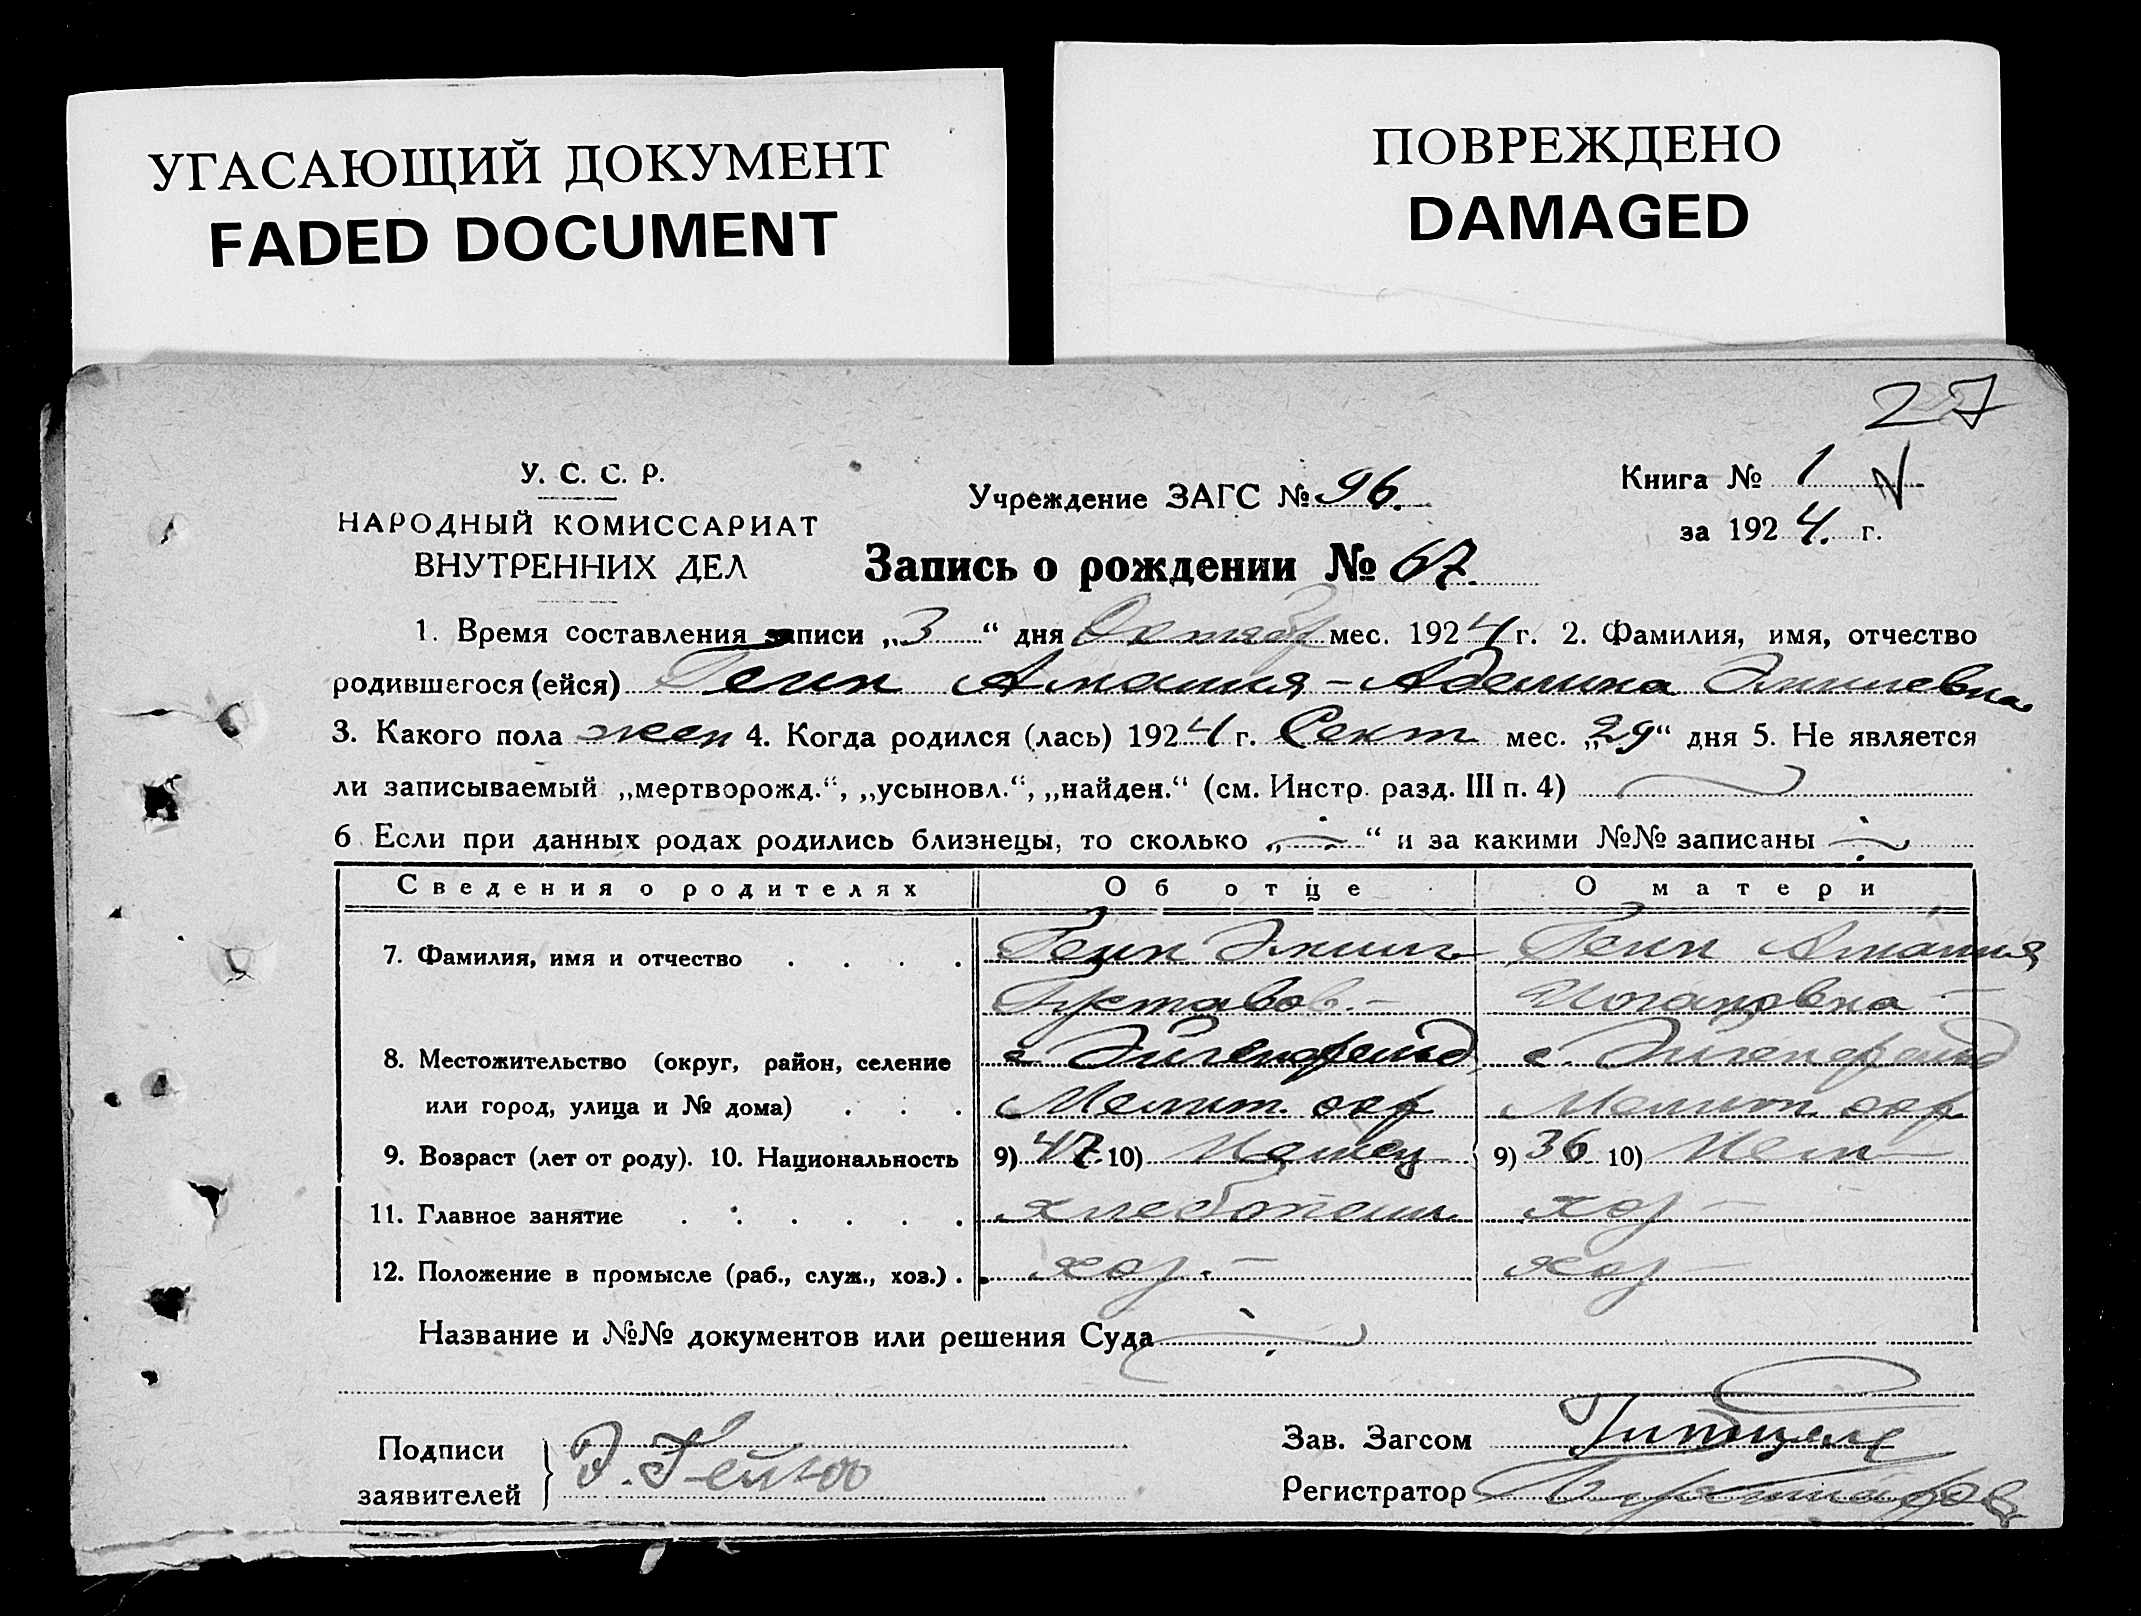 УГАСАЮЩИЙ ДОКУМЕНТ
FADED DOCUMENT
ПОВРЕЖДЕНО
DAMAGED
27
У. С. С. Р.
НАРОДНЫЙ КОМИССАРИАТ
ВНУТРЕННИХ ДЕЛ
Учреждение ЗАГС № 96.
Книга № 1
за 1924. г.
Запись о рождении № 67.
1. Время составления записи „3“ дня Октябр мес. 1924 г. 2. Фамилия, имя, отчество
родившегося (ейся) Гейн Амалия-Аделина Эмилевна
3. Какого пола жен 4. Когда родился (лась) 1924 г. Сент мес. „29“ дня 5. Не является
ли записываемый „мертворожд.“, „усыновл.“, „найден.“ (см. Инстр. разд. III п. 4)
6 Если при данных родах родились близнецы, то сколько „ “ и за какими №№ записаны
Сведения о родителях Об отце О матери
7. Фамилия, имя и отчество . . . . Гейн Эмиль Гейн Амалия
Густавов.- Иогановна -
8. Местожительство (округ, район, селение с Эйгенфельд с. Эйгенфельд
или город, улица и № дома) . . . Мелит. окр Мелит окр
9. Возраст (лет от роду). 10. Национальность 9) 47 10) Немец 9) 36 10) Нем-
11. Главное занятие . . . . . . хлебопаш. хоз -
12. Положение в промысле (раб., служ., хоз.) . хоз. - хоз -
Название и №№ документов или решения Суда
Подписи
заявителей
Э. Гейн
Зав. Загсом
Регистратор